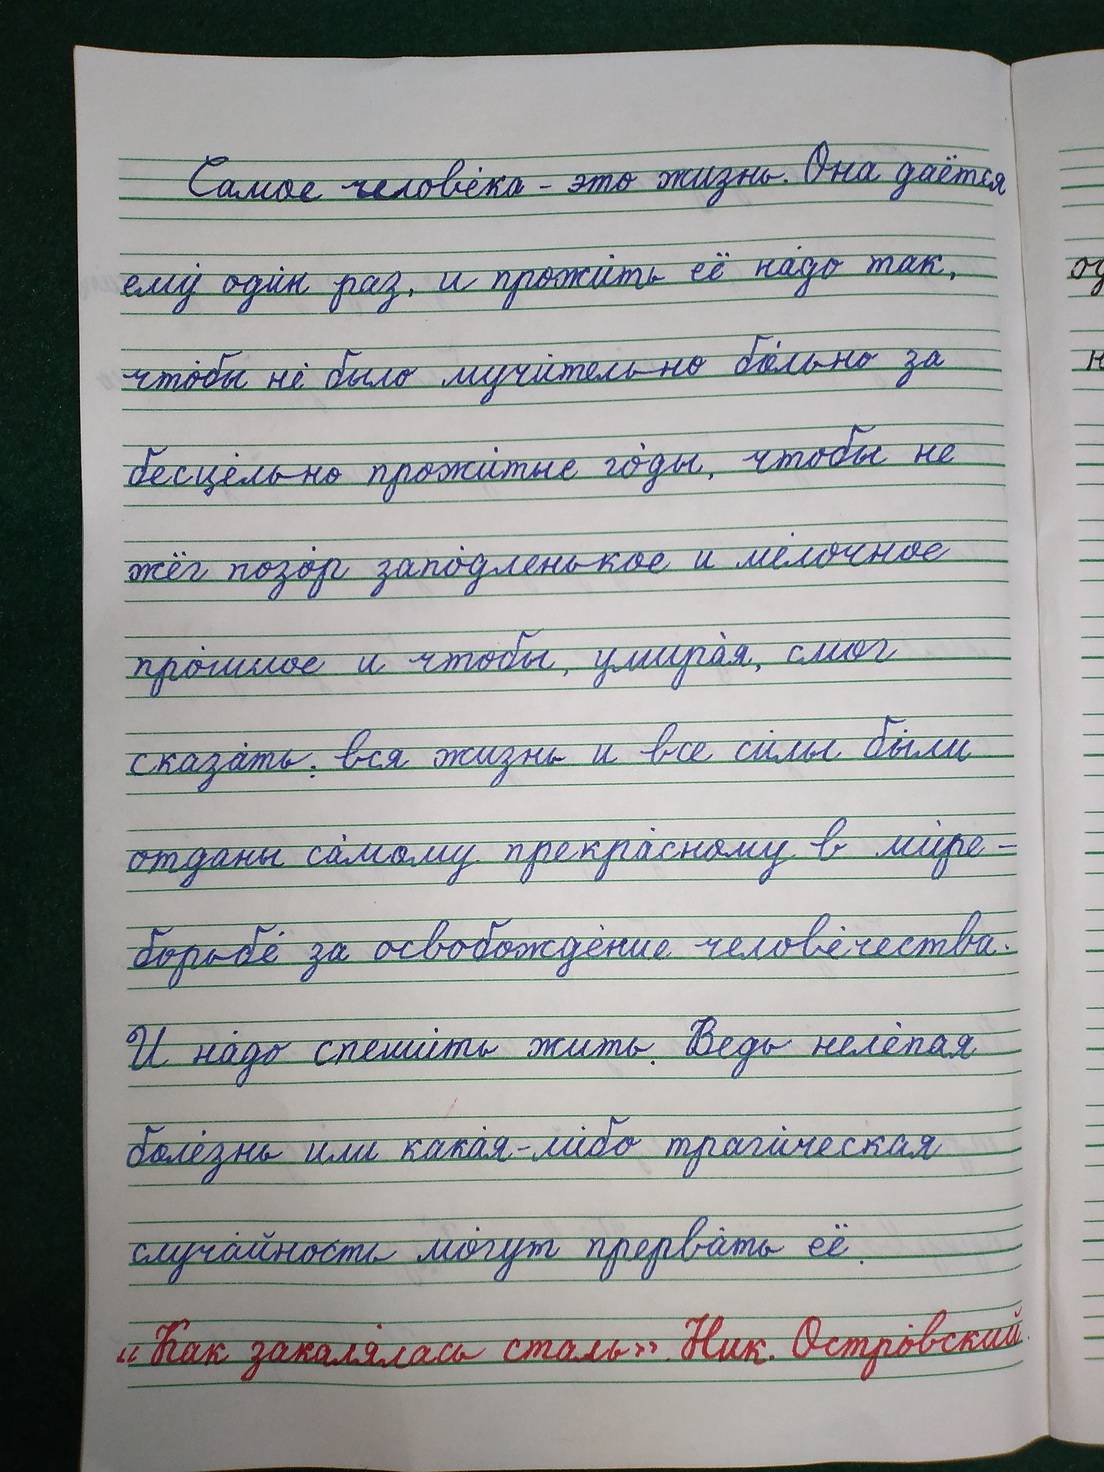 Самое челове́ка - это жизнь. Она даётся
ему́ оди́н раз, и прожи́ть её на́до так,
что́бы не́ было мучи́тельно бо́льно за
бесце́льно прожи́тые го́ды, чтобы не
жёг позо́р запо́дленькое и ме́лочное
про́шлое и чтобы, умира́я, смог
сказа́ть: вся жизнь и все си́лы бы́ли
отданы са́мому прекра́сному в ми́ре -
борьбе́ за освобожде́ние челове́чества.
И на́до спеши́ть жить. Ведь неле́пая
боле́знь или кака́я-ли́бо траги́ческая
случа́йность мо́гут прерва́ть её.
«Как закаля́лась сталь». Ник. Остро́вский.
од
н